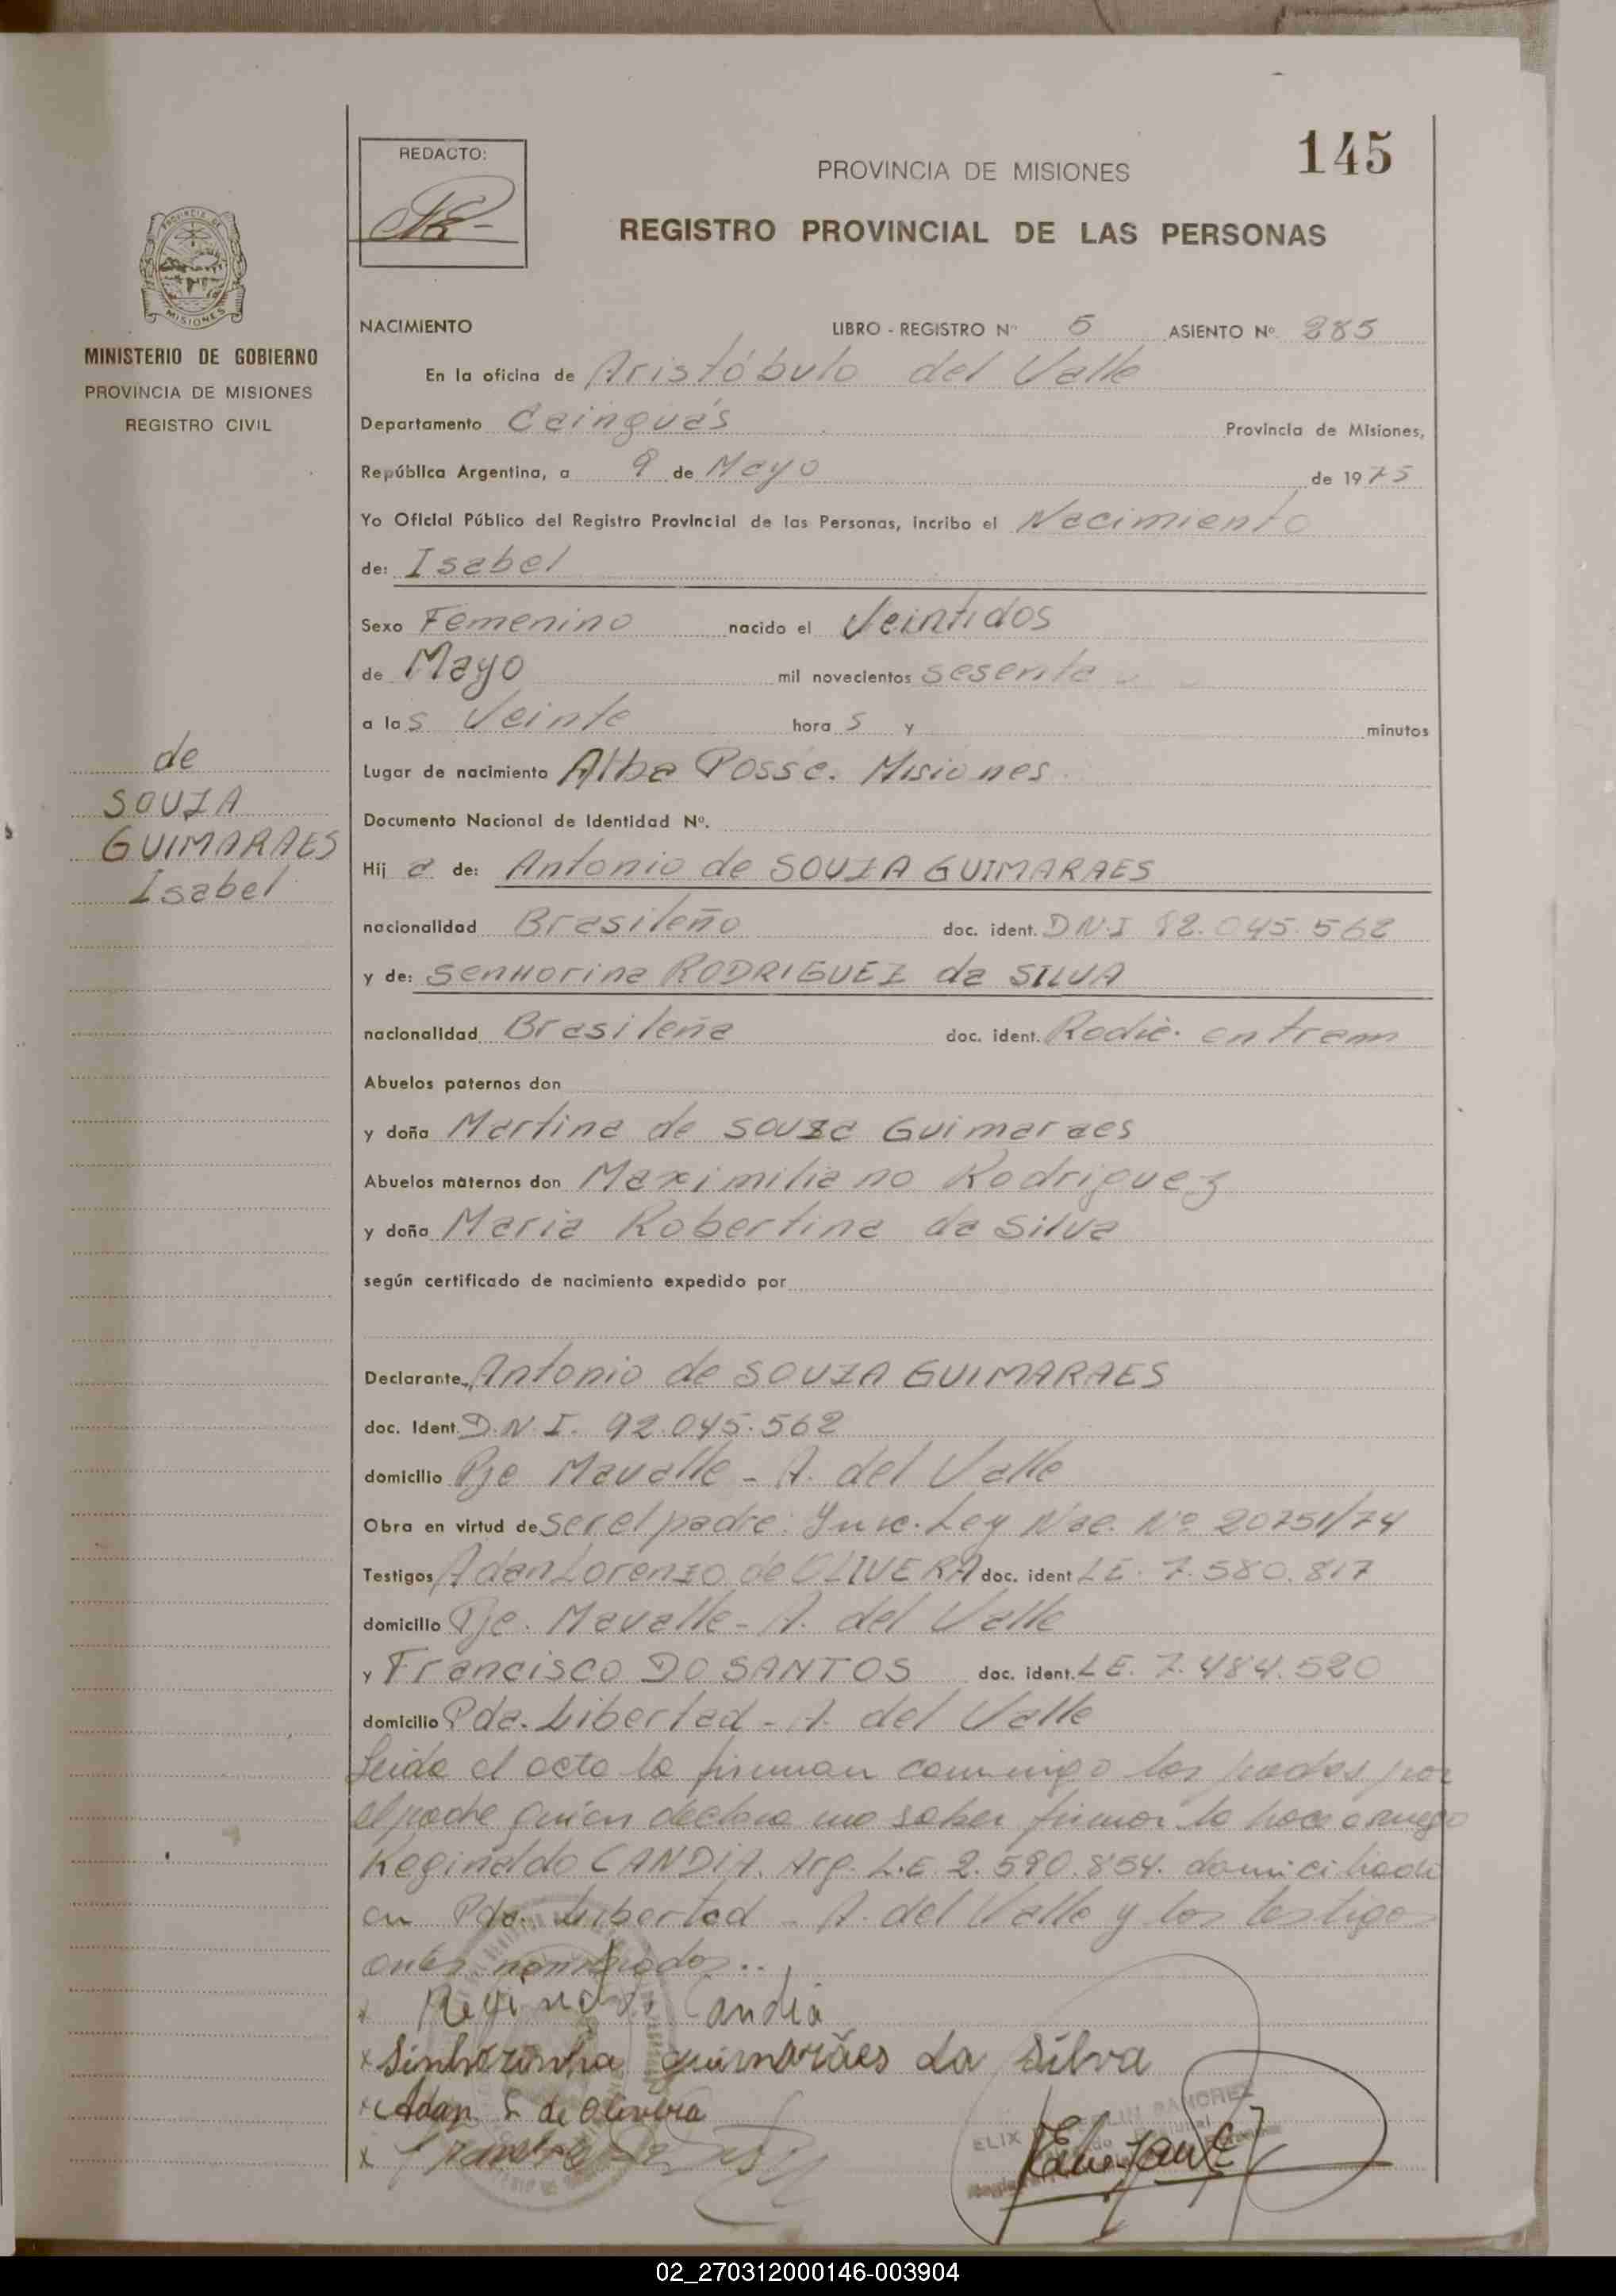 145
REDACTO:
PROVINCIA DE MISIONES
REGISTRO PROVINCIAL DE LAS PERSONAS
PROVINCIA DE
MISIONES
MINISTERIO DE GOBIERNO
PROVINCIA DE MISIONES
REGISTRO CIVIL
de
SOUZA
GUIMARAES
Isabel
NACIMIENTO LIBRO - REGISTRO Nº 5 ASIENTO Nº 285
En la oficina de Aristóbulo del Valle
Departamento Cainguás Provincia de Misiones,
República Argentina, a 9 de Mayo de 1975
Yo Oficial Público del Registro Provincial de las Personas, incribo el Nacimiento
de: Isabel
Sexo Femenino nacido el Veintidos
de Mayo mil novecientos sesenta
a las Veinte hora s y minutos
Lugar de nacimiento Alba Posse. Misiones
Documento Nacional de Identidad Nº.
Hij a de: Antonio de SOUZA GUIMARAES
nacionalidad Brasileño doc. ident. D.N.I 92.045.562
y de: Senhorina RODRIGUEZ da SILVA
nacionalidad Brasileña doc. ident. Radic. en tram
Abuelos paternos don
y doña Martina de Souza Guimaraes
Abuelos maternos don Maximiliano Rodriguez
y doña Maria Robertina da Silva
según certificado de nacimiento expedido por
Declarante Antonio de SOUZA GUIMARAES
doc. Ident. D.N.I. 92.045.562
domicilio Pje Mavalle - A. del Valle
Obra en virtud de ser el padre. Insc. Ley Nac. Nº 20751/74
Testigos Adan Lorenzo de OLIVERA doc. ident LE. 7.580.817
domicilio Pje. Mavalle - A. del Valle
y Francisco DO SANTOS doc. ident. LE. 7.484.520
domicilio Pda. Libertad - A. del Valle
Leida el acta la firman conmigo los padres por
el padre quien declara no saber firmar lo hace a ruego
Reginaldo CANDIA. Arg. L.E. 2.590.854. domiciliado
en Pda. Libertad - A. del Valle y los testigos
antes nombrados..
x Reginaldo Candia
x Sinhorinha guimarães da Silva
x Adan L de Olivera
x
ELIX SANCHEZ
02_270312000146-003904